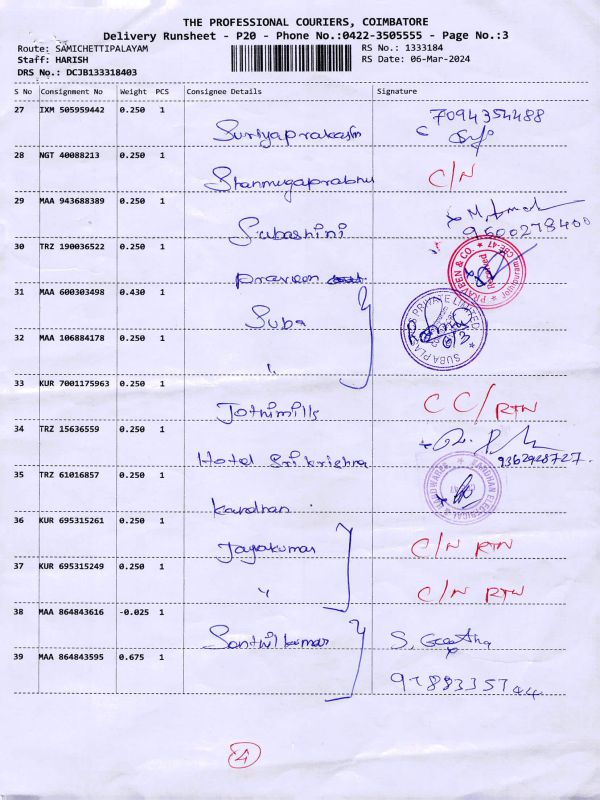 THE PROFESSIONAL COURIERS, COIMBATORE
Delivery Runsheet - P20 - Phone No.:0422-3505555 - Page No.:3
Route: SAMICHETTIPALAYAM RS No.: 1333184
Staff: HARISH RS Date: 06-Mar-2024
DRS No.: DCJB133318403
S No Consignment No Weight PCS Consignee Details Signature
27 IXM 505959442 0.250 1 Suriyaprakash 7094354488
28 NGT 40088213 0.250 1 Shanmugaprabhu C/N
29 MAA 943688389 0.250 1 Subashini 9500278400
30 TRZ 190036522 0.250 1 Praveen PRAVEEN & CO. CBE-47
31 MAA 600303498 0.430 1 Suba
32 MAA 106884178 0.250 1 " 6/3
33 KUR 7001175963 0.250 1 Jothimills CC/RTN
34 TRZ 15636559 0.250 1 Hotel Sri krishna 9362928727.
35 TRZ 61016857 0.250 1 kardhan
36 KUR 695315261 0.250 1 Jayakumar C/N RTN
37 KUR 695315249 0.250 1 " C/N RTN
38 MAA 864843616 -0.025 1 Santhilkumar S. Geetha
39 MAA 864843595 0.675 1
4